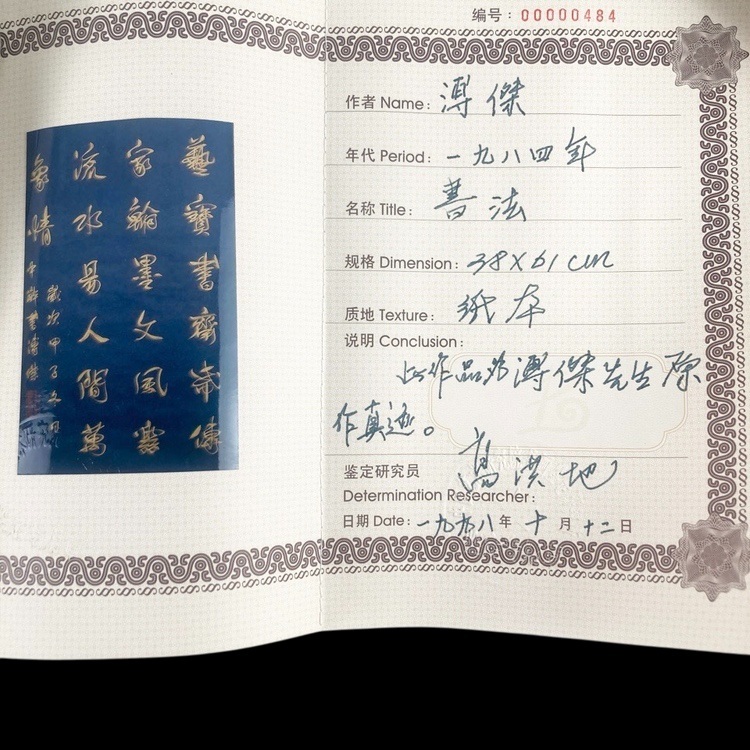 编号：00000484
作者 Name：溥傑
年代 Period：一九八四年
名称 Title：書法
规格 Dimension：38×61cm
质地 Texture：纸本
说明 Conclusion：
此作品为溥傑先生原
作真迹。
鉴定研究员 高洪地
Determination Researcher：
日期 Date：一九九八年十月十二日
藝寶書齋常傳
家翰墨文風靄
流水易人間萬
象情
歲次甲子
書溥傑